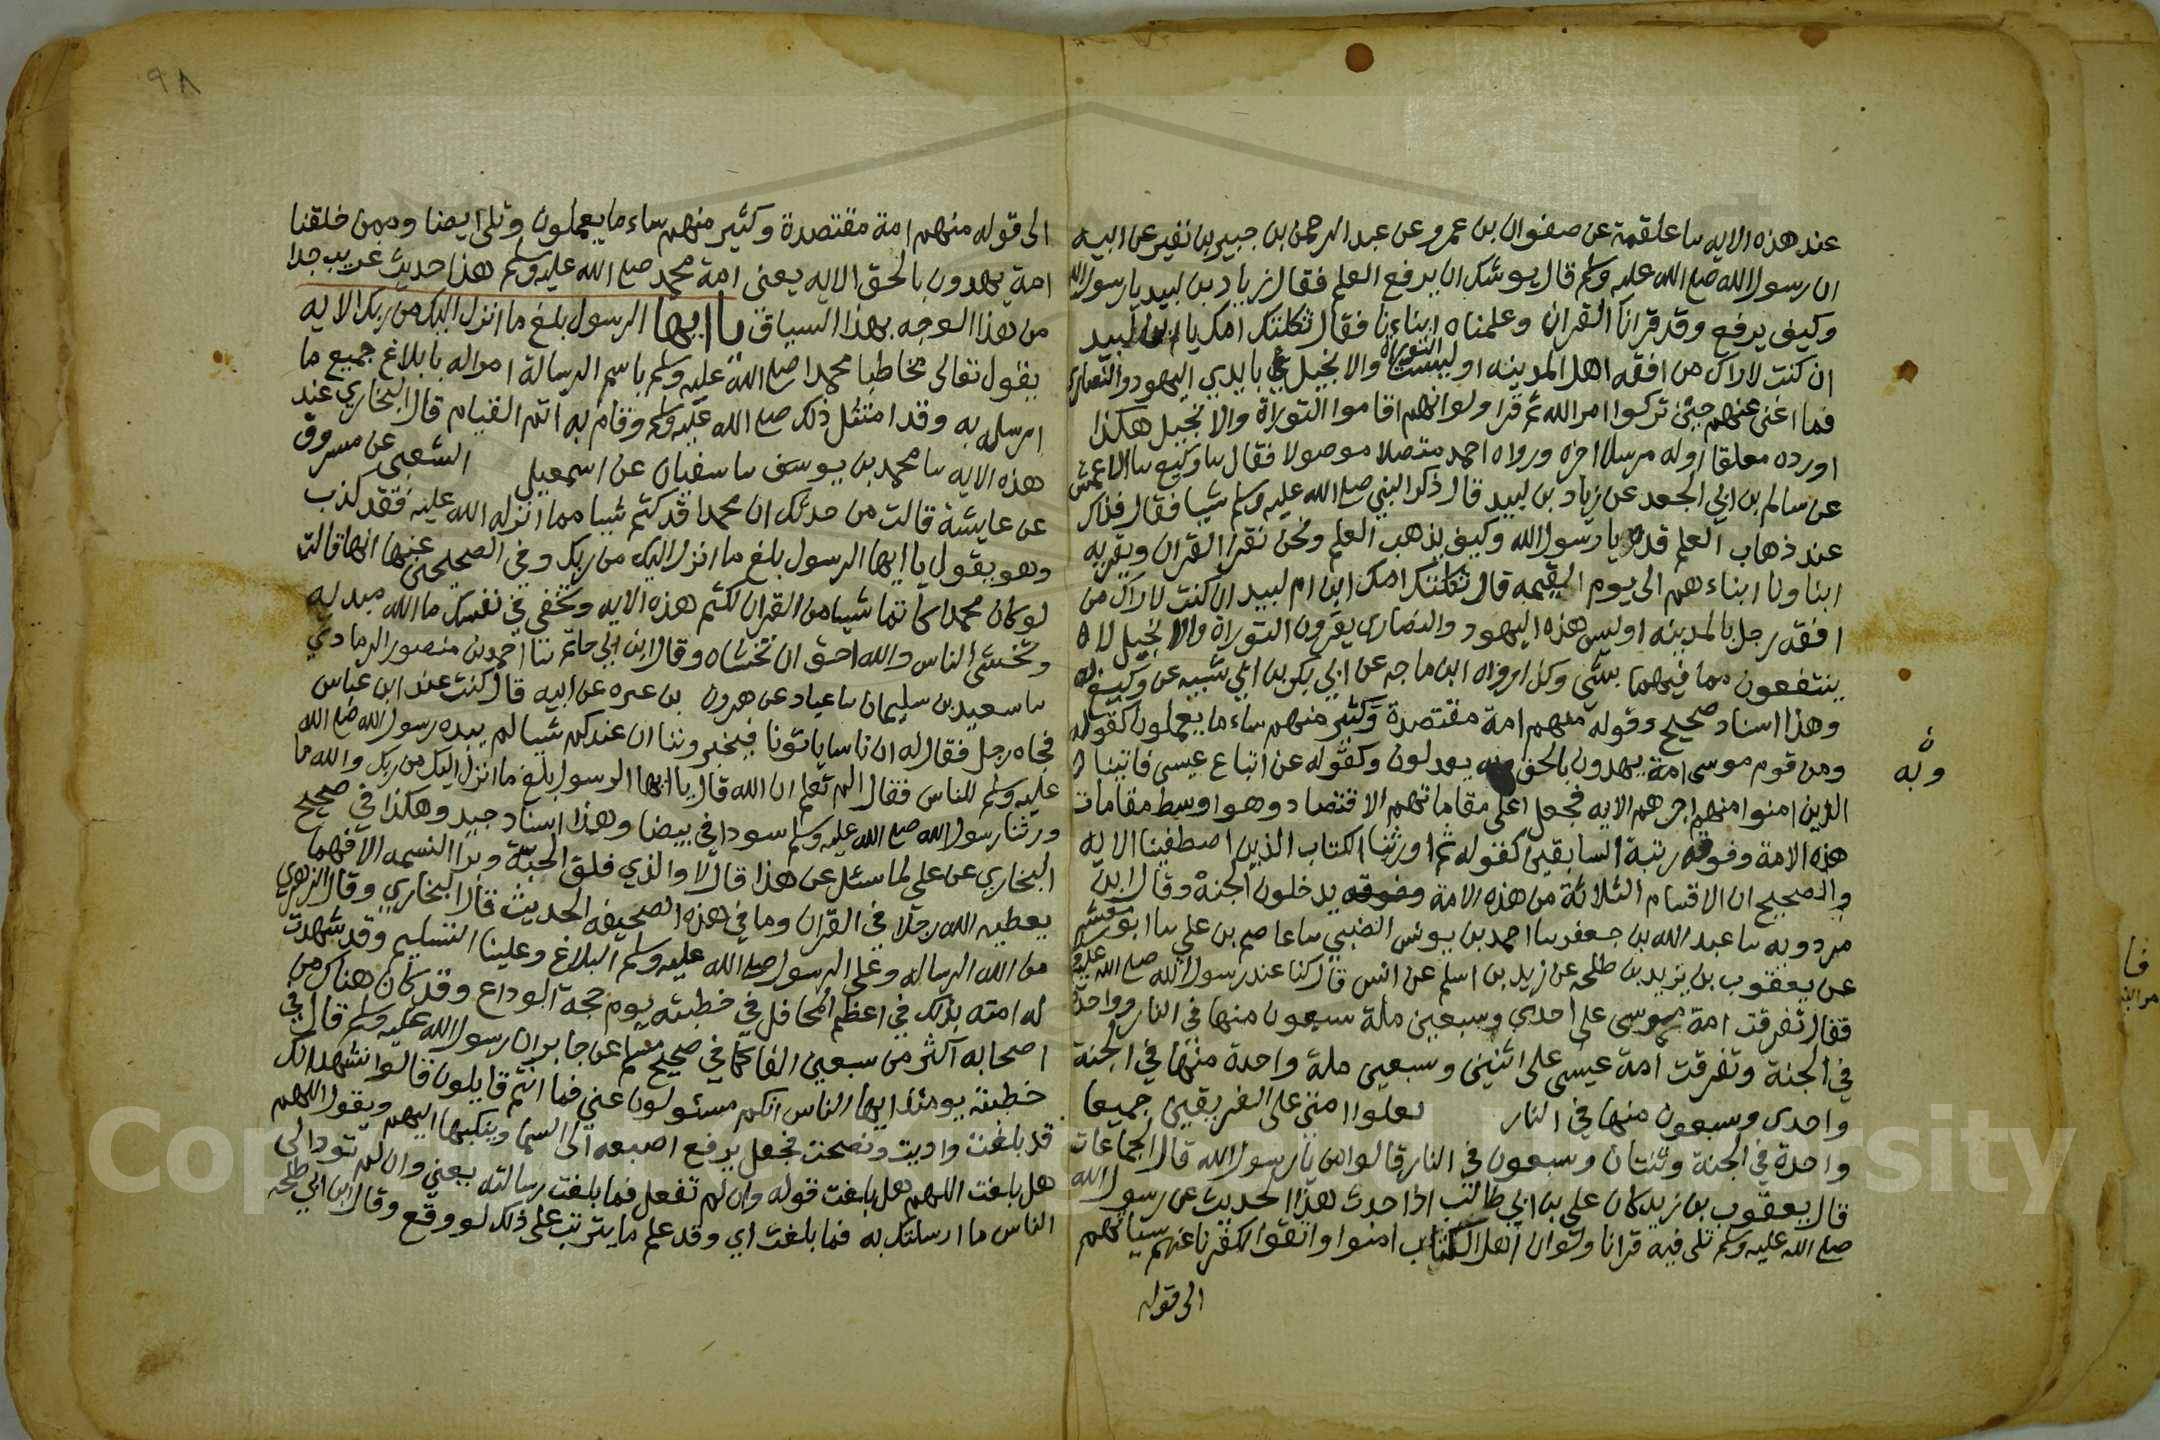 عند هذه الايه سا علقمة عن صفوان بن عمرو عن عبد الرحمن بن جبير بن نفير عن ابيه
ان رسول الله صلى الله عليه وسلم قال يوشك ان يرفع العلم فقال زياد بن لبيد يا رسول الله
وكيف يرفع وقد قرانا القران وعلمناه ابناءنا فقال ثكلتك امك يا ابن لبيد
ان كنت لاراك من افقه اهل المدينه اوليست التوراة والانجيل بايدي اليهود والنصارى
فما اغنى عنهم حين تركوا امر الله ثم قرا ولو انهم اقاموا التوراة والانجيل هكذا
اورده معلقا اوله مرسلا اخره ورواه احمد متصلا موصولا فقال سا وكيع سا الاعمش
عن سالم بن ابي الجعد عن زياد بن لبيد قال ذكر النبي صلى الله عليه وسلم شيا فقال وذاك
عند ذهاب العلم قلنا يا رسول الله وكيف يذهب العلم ونحن نقرا القران ونقريه
ابنا ونا ابناءهم الى يوم القيمه قال ثكلتك امك ابن ام لبيد ان كنت لاراك من
افقه رجل بالمدينه اوليس هذه اليهود والنصارى يقرون التوراة والانجيل لا
ينتفعون مما فيهما بشي وكذا رواه ابن ماجه عن ابي بكر بن ابي شيبه عن وكيع به
وهذا اسناد صحيح وقوله منهم امة مقتصدة وكثير منهم ساء ما يعملون كقوله
ومن قوم موسى امة يهدون بالحق وبه يعدلون وكقوله عن اتباع عيسى فاتينا
وبه
الذين امنوا منهم اجرهم الايه فجعل اعلى مقاماتهم الاقتصاد وهو اوسط مقامات
هذه الامة وفوقه رتبة السابقين كقوله ثم اورثنا الكتاب الذين اصطفينا الايه
والصحيح ان الاقسام الثلاثة من هذه الامة يدخلون الجنة وقال ابن
مردويه سا عبد الله بن جعفر سا احمد بن يونس الضبي سا عاصم بن علي سا ابو معشر
عن يعقوب بن يزيد بن طلحه عن زيد بن اسلم عن انس قال كنا عند رسول الله صلى الله عليه
فقال تفرقت امة موسى على احدي وسبعين ملة سبعون منها في النار وواحدة
في الجنة وتفرقت امة عيسى على اثنين وسبعين ملة واحدة منها في الجنة
واحدى وسبعون منها في النار تعلوا امتي على الفريقين جميعا
واحدة في الجنة وثنتان وسبعون في النار قالوا من يا رسول الله قال الجماعات
قال يعقوب بن زيد كان علي بن ابي طالب اذا حدث هذا الحديث عن رسول الله
صلى الله عليه وسلم تلى فيه قرانا ولو ان اهل الكتاب امنوا واتقوا لكفرنا عنهم سياتهم
الى قوله
٩٨
الى قوله منهم امة مقتصدة وكثير منهم ساء ما يعملون وتلى ايضا وممن خلقنا
امة يهدون بالحق الايه يعني امة محمد صلى الله عليه وسلم هذا حديث غريب جدا
من هذا الوجه بهذا السياق يا ايها الرسول بلغ ما انزل اليك من ربك الايه
يقول تعالى مخاطبا محمدا صلى الله عليه وسلم باسم الرسالة امرا له بابلاغ جميع ما
ارسله به وقد امتثل ذلك صلى الله عليه وسلم وقام به اتم القيام قال البخاري عند
هذه الايه سا محمد بن يوسف سا سفيان عن اسمعيل الشعبي عن مسروق
عن عايشة قالت من حدثك ان محمدا قد كتم شيا مما انزله الله عليه فقد كذب
وهو يقول يا ايها الرسول بلغ ما انزل اليك من ربك وفي الصحيحين عنها انها قالت
لو كان محمدا كاتما شيا من القران لكتم هذه الايه وتخفي في نفسك ما الله مبديه
وتخشى الناس والله احق ان تخشاه وقال ابن ابي حاتم ثنا احمد بن منصور الرمادي
سا سعيد بن سليمان سا عباد عن هرون بن عنتره عن ابيه قال كنت عند ابن عباس
فجاه رجل فقال له ان ناسا ياتونا فيخبروننا ان عندكم شيا لم يبده رسول الله صلى الله
عليه وسلم للناس فقال الم تعلم ان الله قال يا ايها الرسول بلغ ما انزل اليك من ربك والله ما
ورثنا رسول الله صلى الله عليه وسلم سودا في بيضا وهذا اسناد جيد وهكذا في صحيح
البخاري عن علي لما سئل عن هذا قال لا والذي فلق الحبة وبرا النسمه الا فهما
يعطيه الله رجلا في القران وما في هذه الصحيفه الحديث قال البخاري وقال الزهري
من الله الرساله وعلى الرسول صلى الله عليه وسلم البلاغ وعلينا التسليم وقد شهدت
له امته بذلك في اعظم المحافل في خطبته يوم حجة الوداع وقد كان هناك من
اصحابه اكثر من سبعين الفا كما في صحيح مسلم عن جابر ان رسول الله عليه وسلم قال في
خطبته يومئذ ايها الناس انكم مسئولون عني فما انتم قايلون قالوا نشهد انك
قد بلغت واديت ونصحت فجعل يرفع اصبعه الى السما وينكبها اليهم ويقول اللهم
هل بلغت اللهم هل بلغت قوله وان لم تفعل فما بلغت رسالته يعني وان لم تود الى
الناس ما ارسلتك به فما بلغت اي وقد علم ما يترتب على ذلك لو وقع وقال ابن ابي طلحه